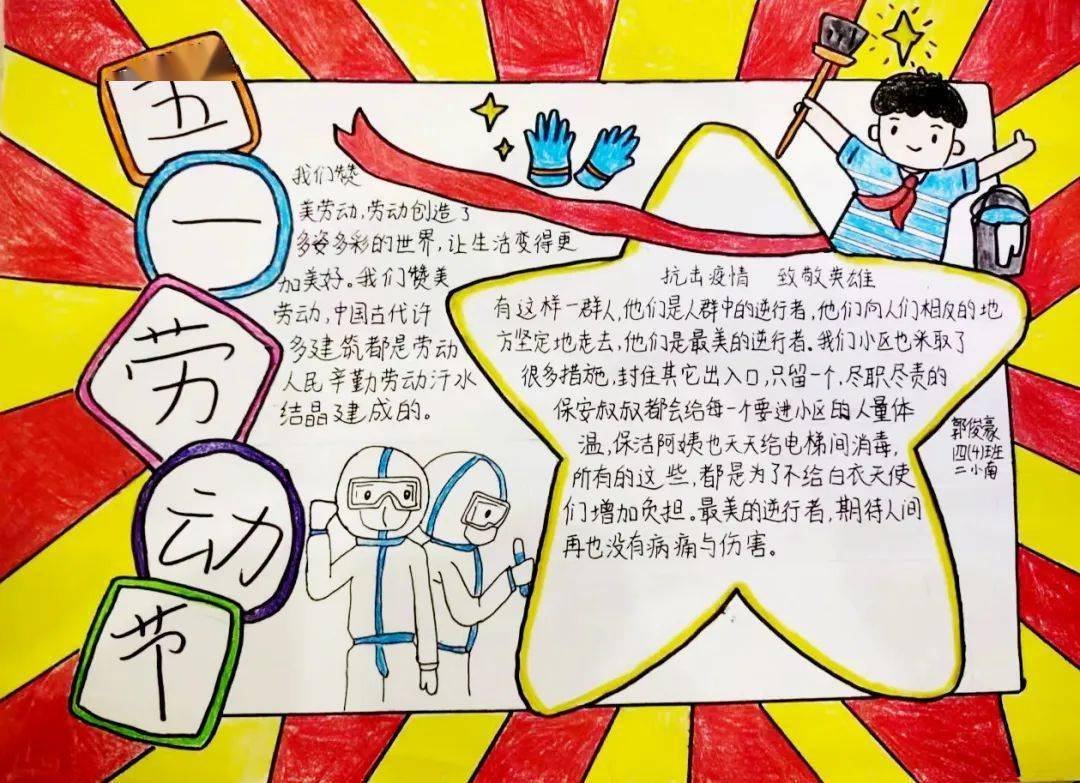 五
一
劳
动
节
我们赞
美劳动,劳动创造了
多姿多彩的世界,让生活变得更
加美好。我们赞美
劳动,中国古代许
多建筑都是劳动
人民辛勤劳动汗水
结晶建成的。
抗击疫情 致敬英雄
有这样一群人,他们是人群中的逆行者,他们向人们相反的地
方坚定地走去,他们是最美的逆行者。我们小区也采取了
很多措施,封住其它出入口,只留一个,尽职尽责的
保安叔叔都会给每一个要进小区的人量体
温,保洁阿姨也天天给电梯间消毒,
所有的这些,都是为了不给白衣天使
们增加负担。最美的逆行者,期待人间
再也没有病痛与伤害。
郭俊豪
四(4)班
二小南